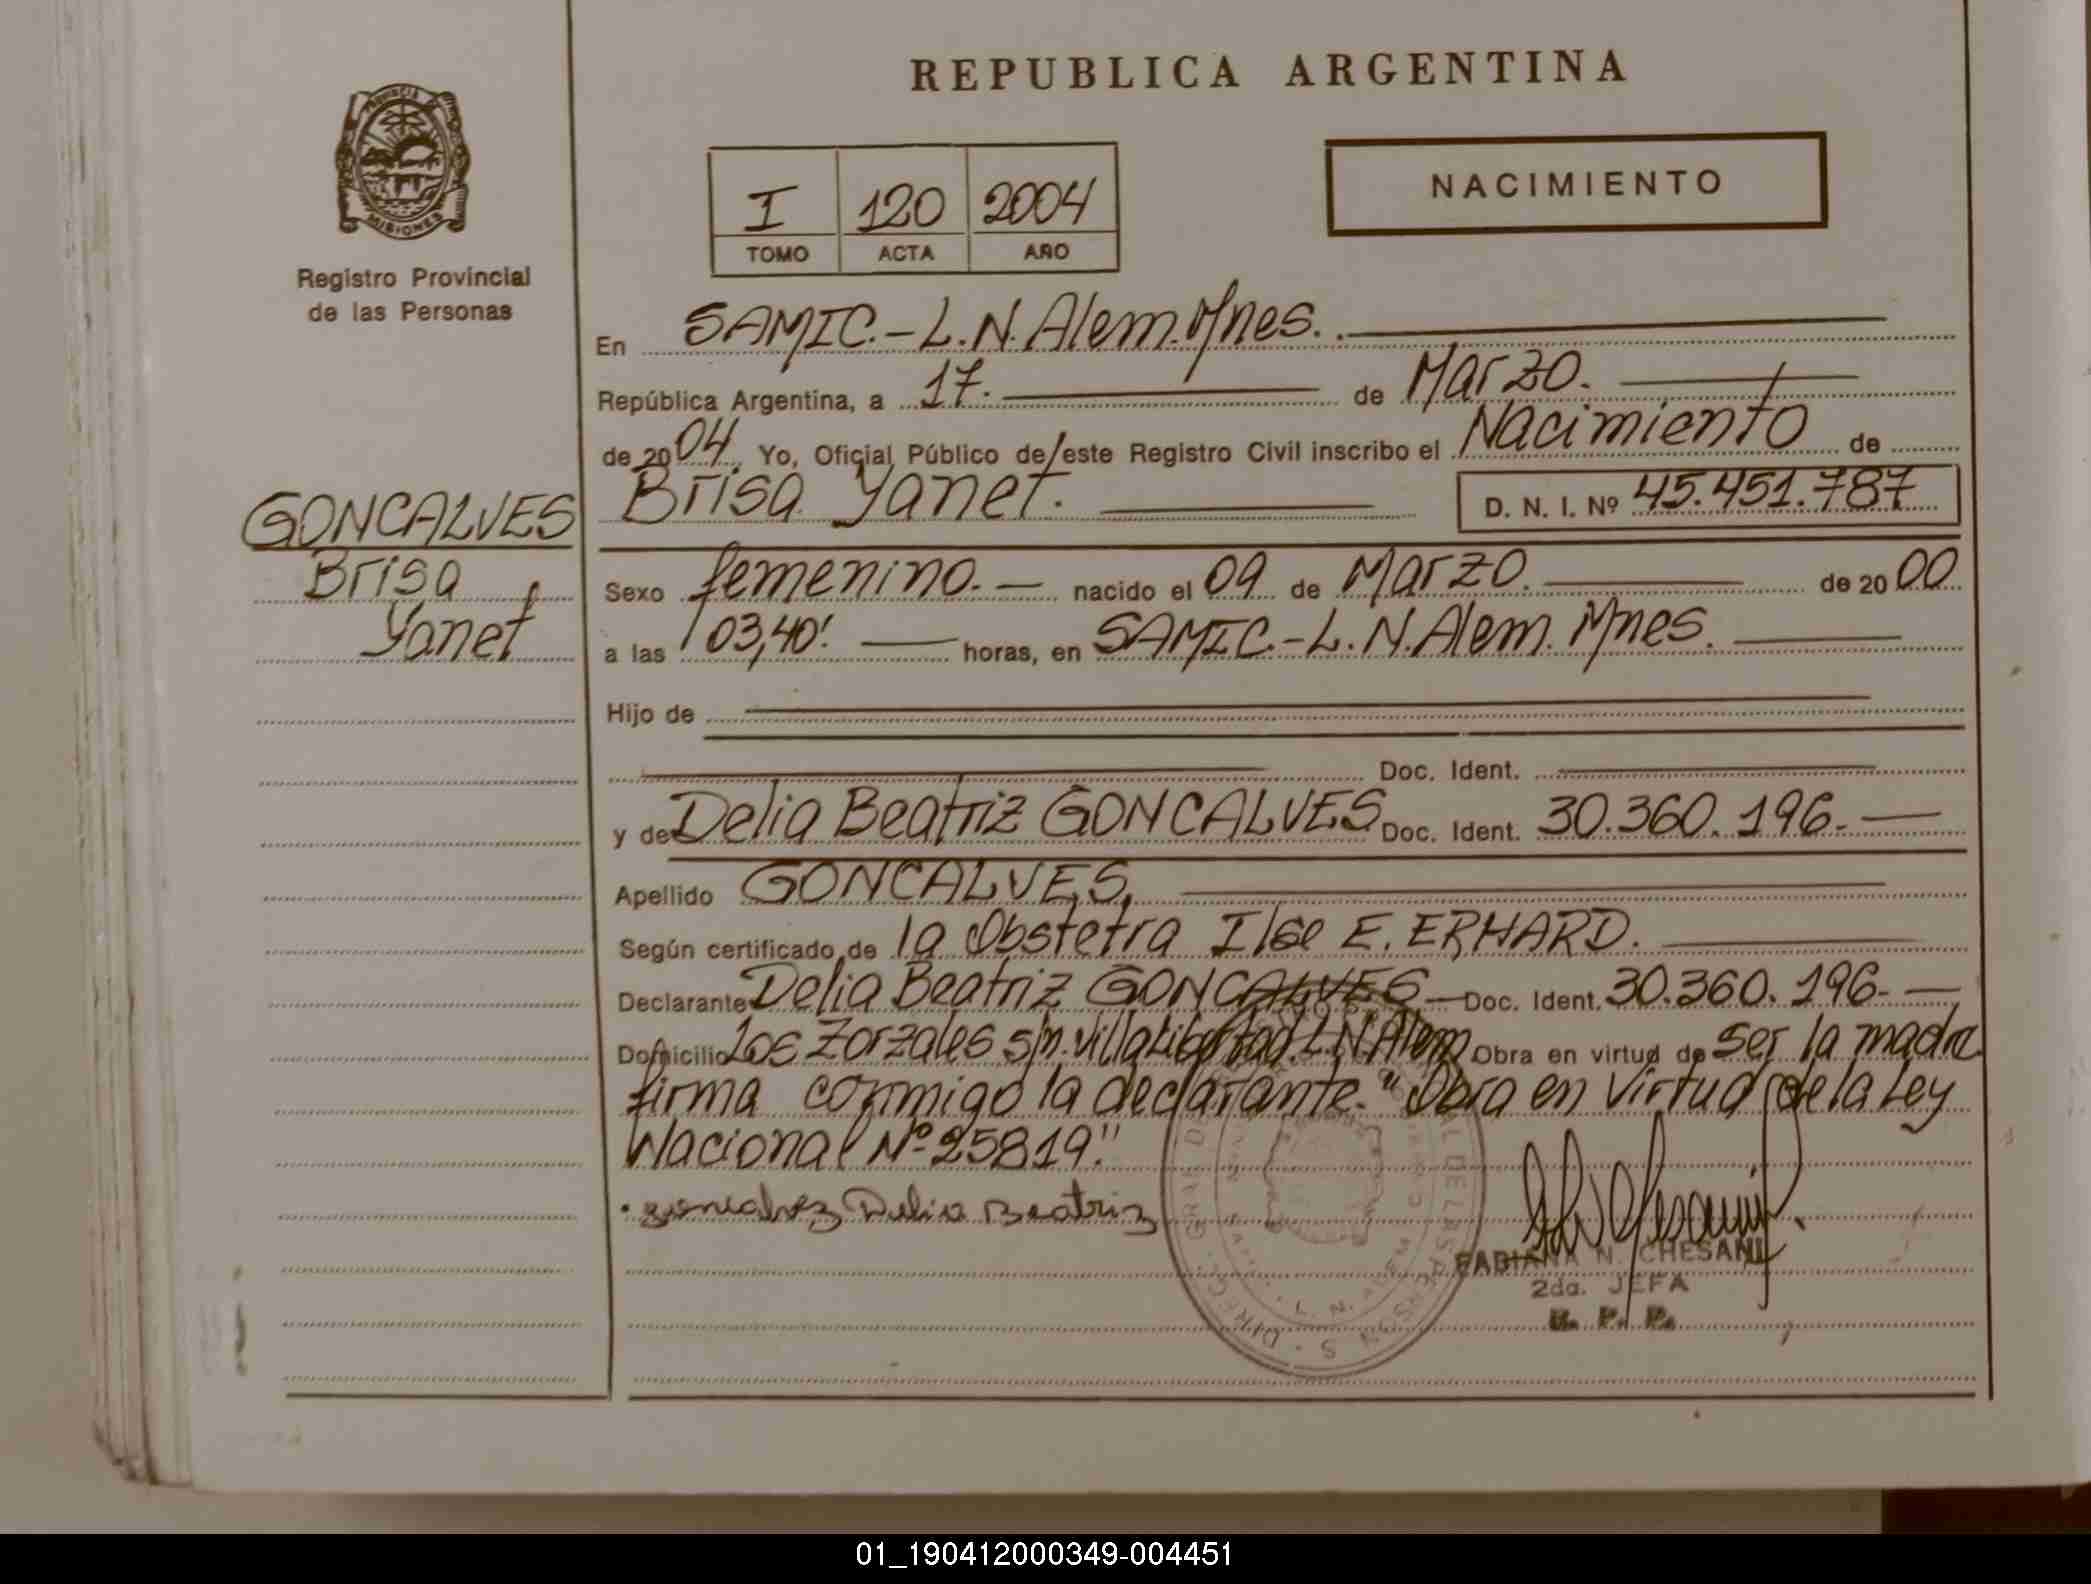 REPUBLICA ARGENTINA
PROVINCIA DE
MISIONES
Registro Provincial
de las Personas
I 120 2004
TOMO ACTA AÑO
NACIMIENTO
En SAMIC.-L.N.Alem.Mnes.
República Argentina, a 17. de Marzo.
de 2004. Yo, Oficial Público de este Registro Civil inscribo el Nacimiento de
GONCALVES
Brisa
Yanet
Brisa Yanet. D. N. I. Nº 45.451.787
Sexo femenino. nacido el 09 de Marzo. de 2000
a las 03,40! horas, en SAMIC.-L.N.Alem. Mnes.
Hijo de
Doc. Ident.
y de Delia Beatriz GONCALVES Doc. Ident. 30.360.196.
Apellido GONCALVES.
Según certificado de la Obstetra Ilse E. ERHARD.
Declarante Delia Beatriz GONCALVES Doc. Ident. 30.360.196.
Domicilio Los Zorzales s/n. villa Libertad. L.N.Alem Obra en virtud de ser la madre
firma conmigo la declarante. "Obra en virtud de la Ley
Nacional Nº 25819."
goncalvez Delia Beatriz
FABIANA N. CHESANI
2da. JEFA
R. P. P.
L. N. ALEM
01_190412000349-004451